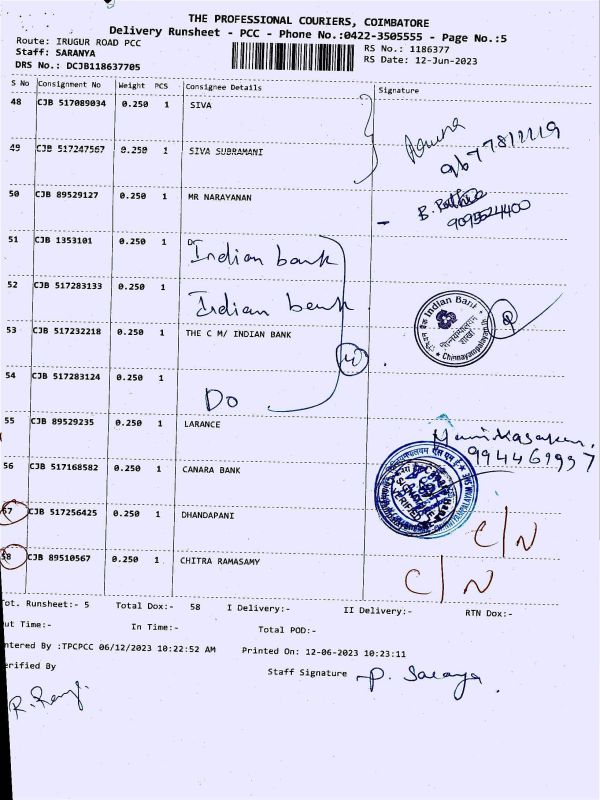 THE PROFESSIONAL COURIERS, COIMBATORE
Delivery Runsheet - PCC - Phone No.:0422-3505555 - Page No.:5
Route: IRUGUR ROAD PCC
RS No.: 1186377
Staff: SARANYA
RS Date: 12-Jun-2023
DRS No.: DCJB118637705
S No Consignment No Weight PCS Consignee Details Signature
48 CJB 517089034 0.250 1 SIVA
49 CJB 517247567 0.250 1 SIVA SUBRAMANI
50 CJB 89529127 0.250 1 MR NARAYANAN
51 CJB 1353101 0.250 1 Indian bank
52 CJB 517283133 0.250 1 Indian bank
Indian Bank
Chinnayampalayam
53 CJB 517232218 0.250 1 THE C M/ INDIAN BANK
54 CJB 517283124 0.250 1 Do
55 CJB 89529235 0.250 1 LARANCE
994461997
56 CJB 517168582 0.250 1 CANARA BANK
57 CJB 517256425 0.250 1 DHANDAPANI C/N
58 CJB 89510567 0.250 1 CHITRA RAMASAMY C/N
Tot. Runsheet:- 5 Total Dox:- 58 I Delivery:- II Delivery:- RTN Dox:-
ut Time:- In Time:- Total POD:-
ntered By :TPCPCC 06/12/2023 10:22:52 AM Printed On: 12-06-2023 10:23:11
erified By Staff Signature P. Saranya